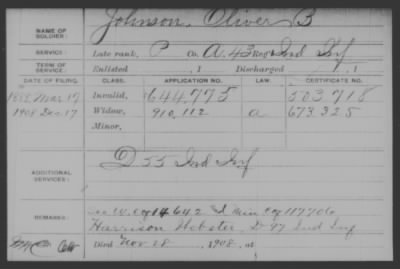 Johnson, Oliver B
NAME OF SOLDIER:
SERVICE: Late rank, P Co. A, 43 Reg't Ind Inf
TERM OF SERVICE: Enlisted , 1 Discharged , 1
DATE OF FILING. CLASS. APPLICATION NO. LAW. CERTIFICATE NO.
1888 Mar 17 Invalid, 644,775 503,718
1908 Dec. 17 Widow, 910,112 a 673,325
Minor,
ADDITIONAL SERVICES: D 55 Ind Inf
REMARKS: 117706
Harrison Webster, D 97 Ind Inf
Died Nov 28 , 1908, at